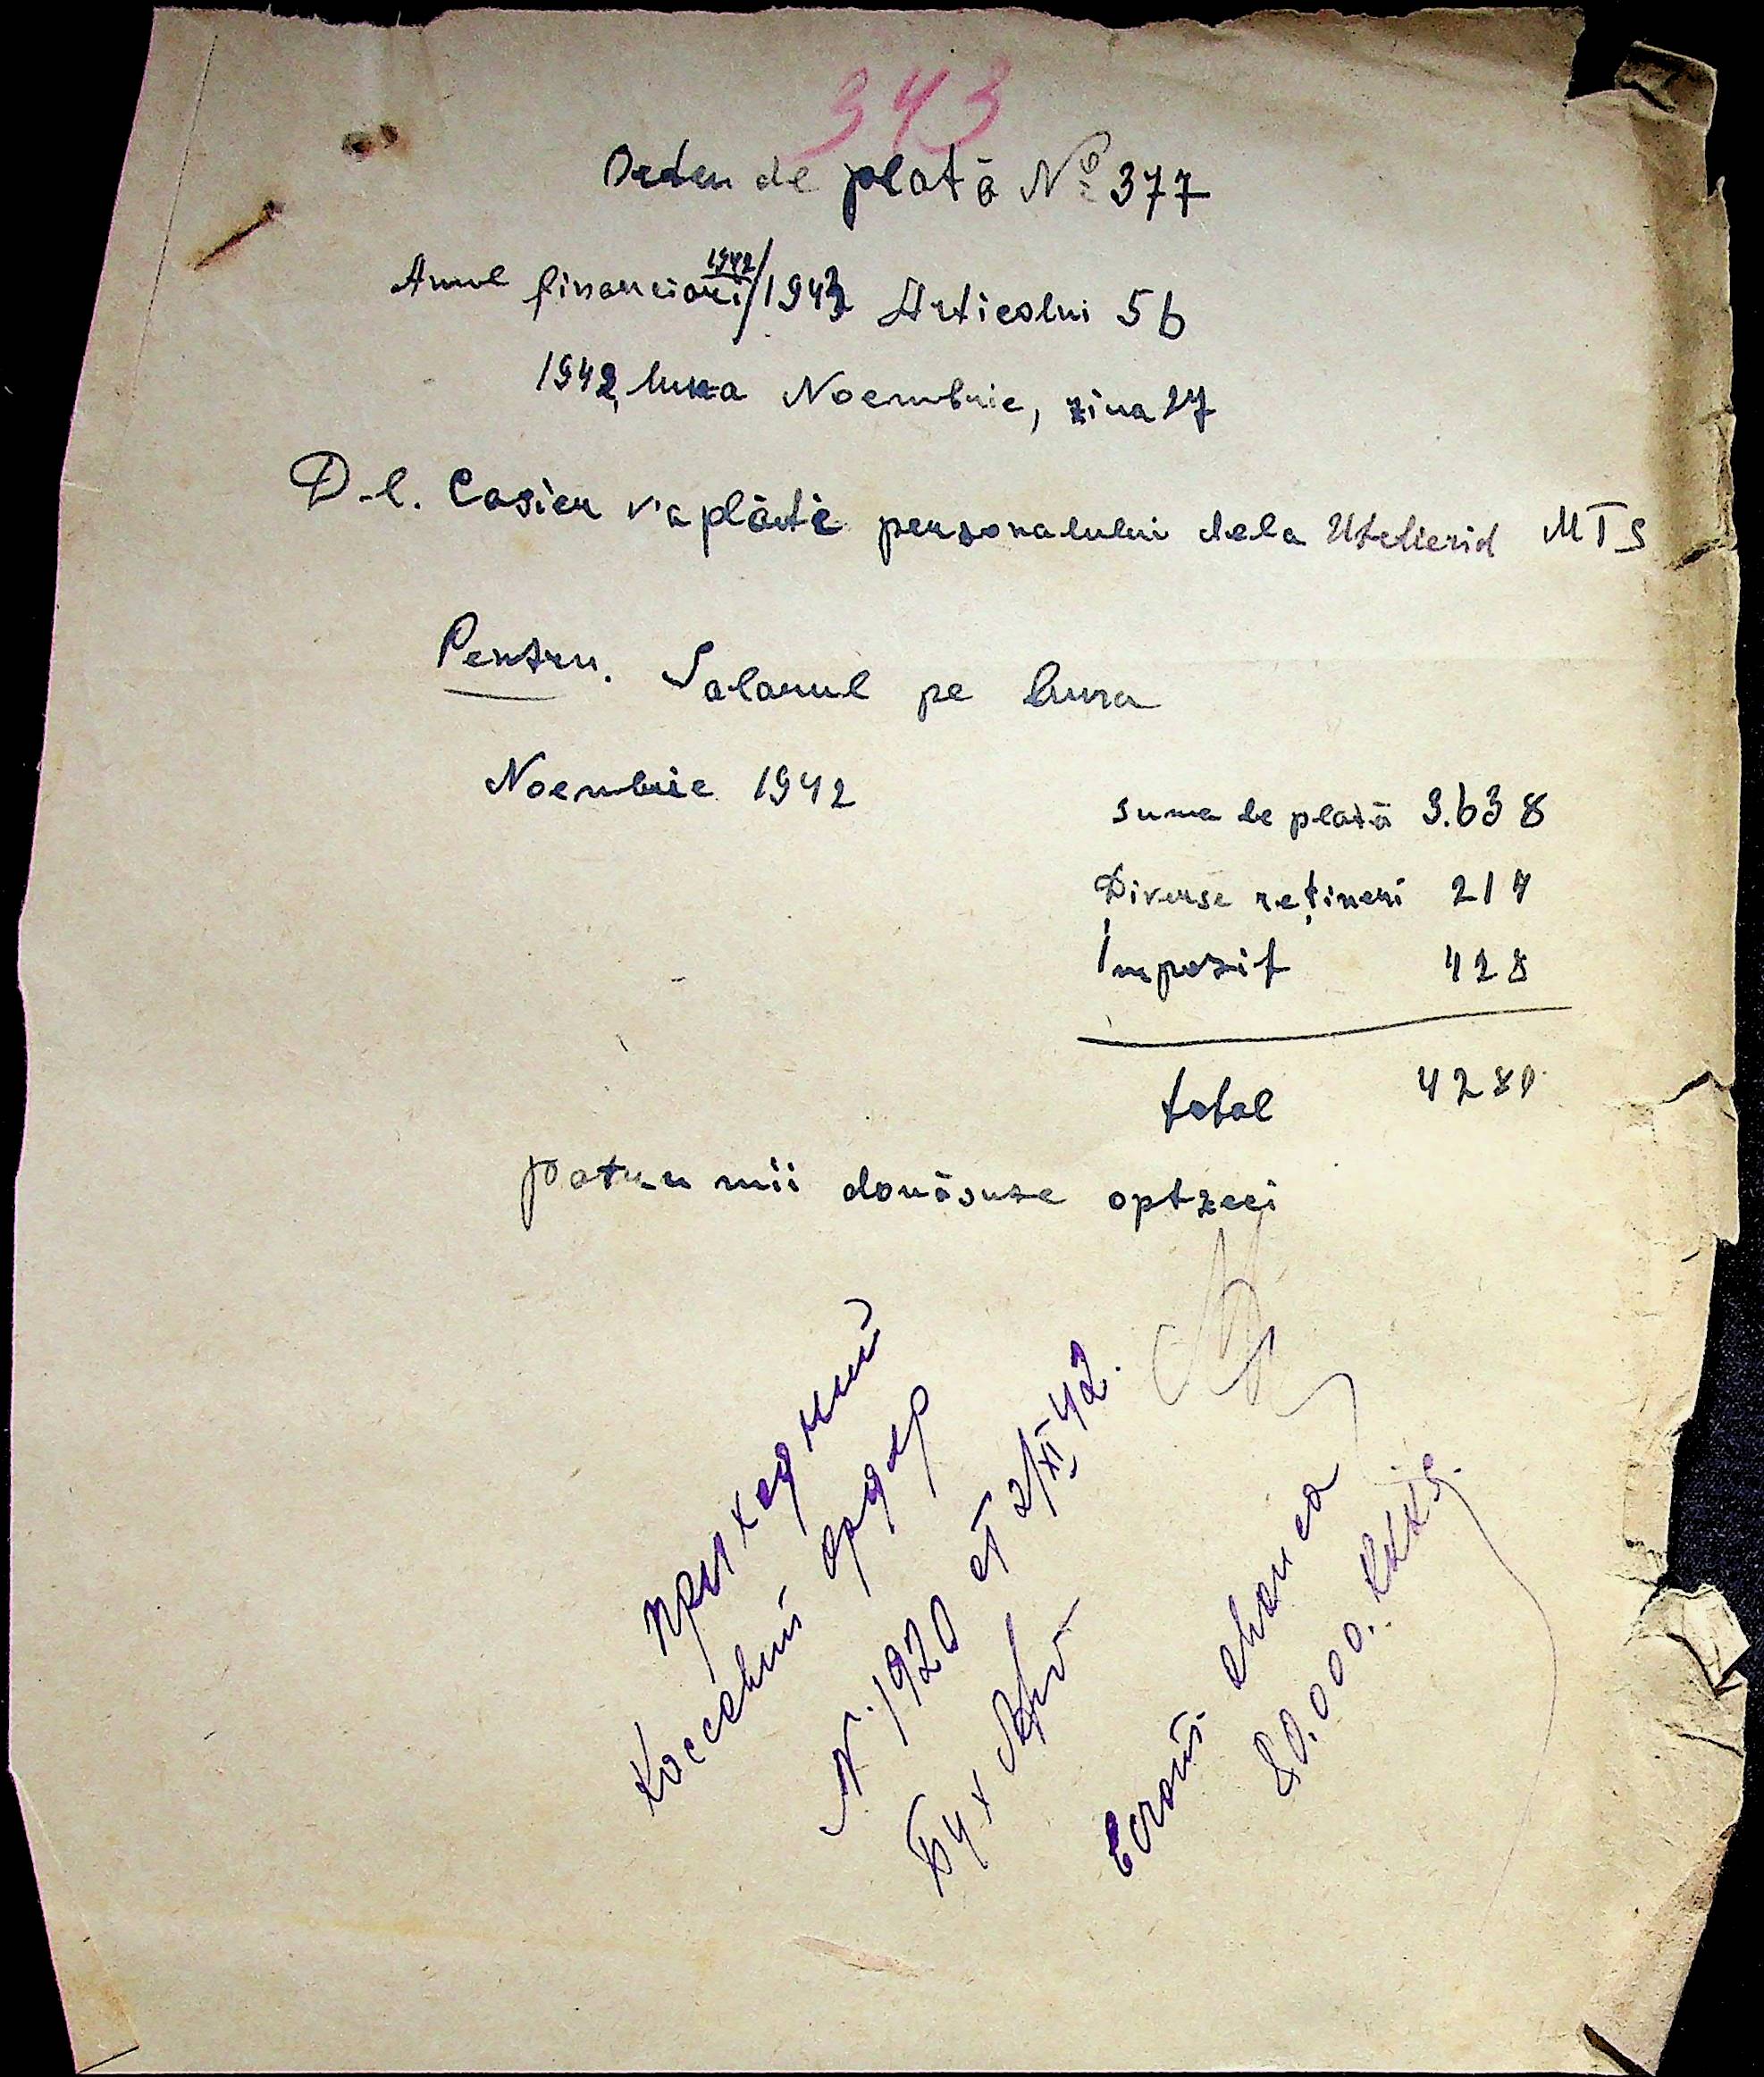 343
Orden de plată № 377
Anul financiari 1942/1943 Articolui 56
1942, luna Noembrie, ziua 27
D-l. Casier v'a plăti personalului dela MTS
Pentru. Salariul pe luna
Noembrie 1942
suma de plată 3.638
Diverse rețineri 214
Impozit 428
total 4280
patru mii douăsute optzeci
приходний
Кассовий ордер
N. 1920 от 2/XI 42.
Бух
80.000.